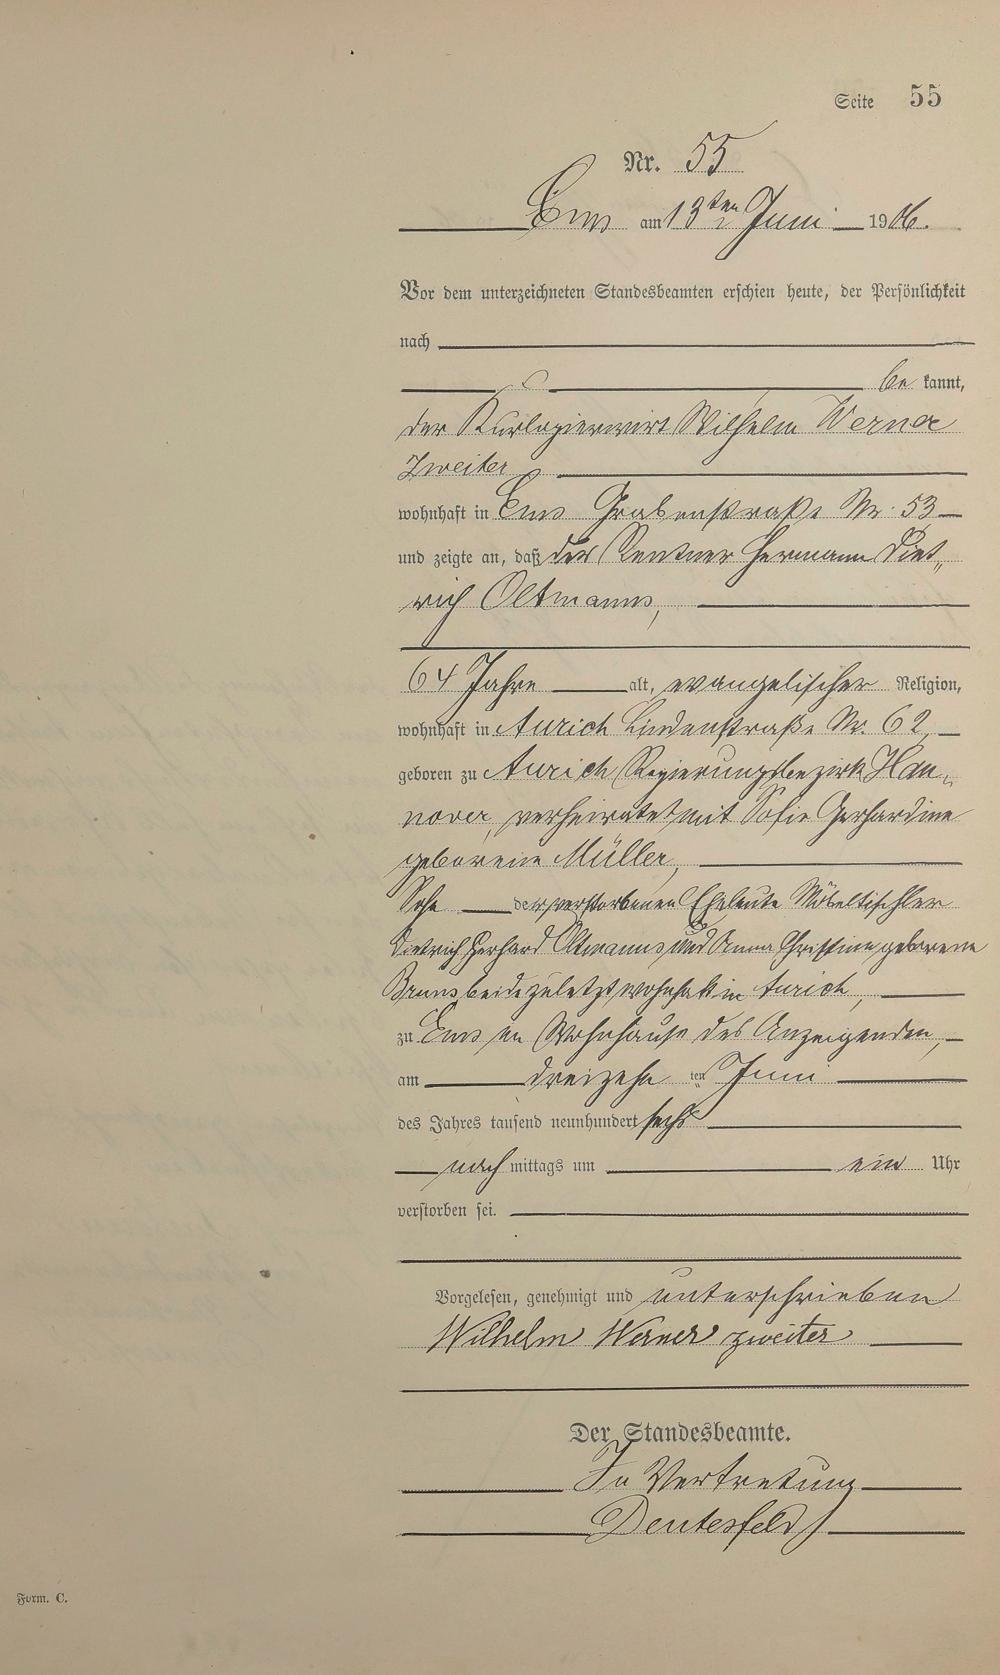 Seite 55
Nr. 55
Ems am 13ten Juni 1906.
Vor dem unterzeichneten Standesbeamten erschien heute, der Persönlichkeit
nach
be kannt,
der Kurlogierwirt Wilhelm Werner
Zweiter
wohnhaft in Ems Grabenstraße Nr. 53
und zeigte an, daß der Rentner Hermann Diet„
rich Oltmanns,
64 Jahre alt, evangelischer Religion,
wohnhaft in Aurich Lindenstraße Nr. 62,
geboren zu Aurich Regierungsbezirk Han„
nover, verheiratet mit Sofie Gerhardine
geborene Müller,
Sohn der verstorbenen Eheleute Möbeltischler
Dietrich Gerhard Oltmanns und Anna Christine geborene
Bruns beide zuletzt wohnhaft in Aurich,
zu Ems im Wohnhause des Anzeigenden,
am dreizehn ten Juni
des Jahres tausend neunhundert sechs
nach mittags um ein Uhr
verstorben sei.
Vorgelesen, genehmigt und unterschrieben
Wilhelm Werner zweiter
Der Standesbeamte.
In Vertretung
Deutesfeld
Form. C.